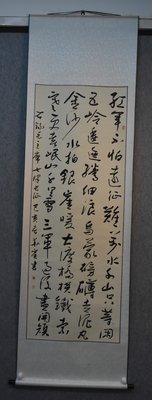 紅軍不怕遠征難萬水千山只等閑
五岭逶迤騰細浪烏蒙磅礴走泥丸
金沙水拍雲崖暖大渡橋横鐵索
寒更喜岷山千里雪三軍過後盡開顔
毛主席七律長征